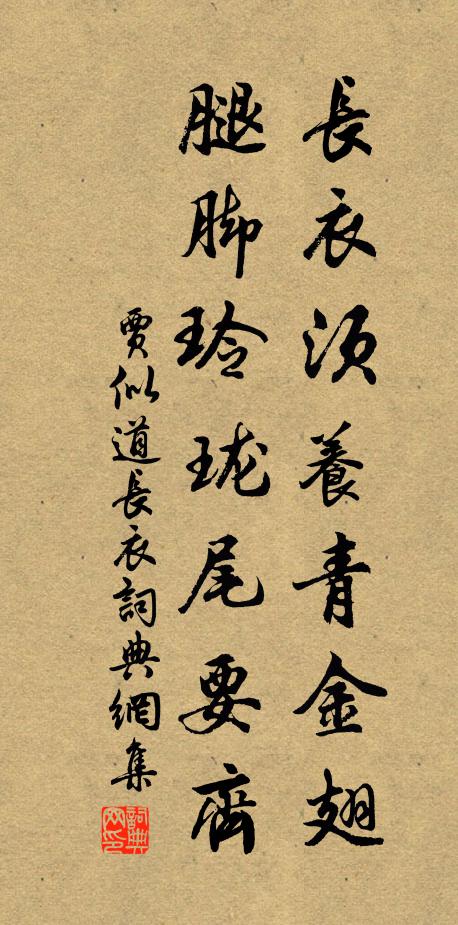 長衣須養青金翅
腿脚玲瓏尾要齊
賈似道長衣詞典網集
詞典
网印